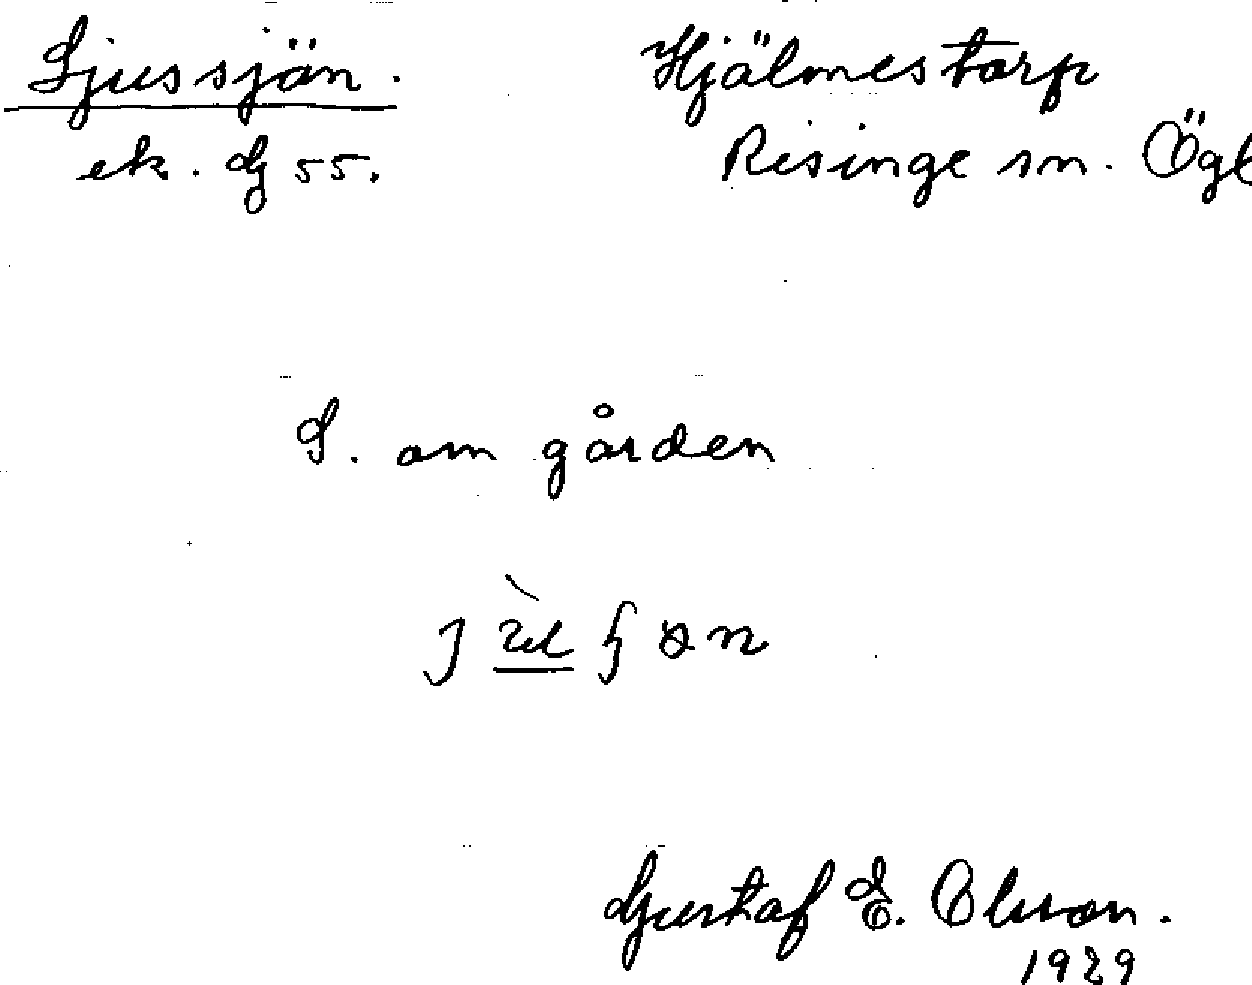 Ljussjön. Hjälmestorp
ek. G 55. Risinge sn. Ögl
S. om gården
Gustaf E. Olsson.
1929